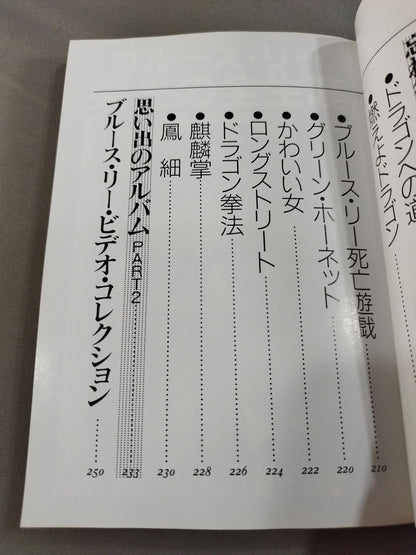 ドラゴンへの道
燃えよドラゴン
●ブルース・リー死亡遊戯……210
●グリーン・ホーネット……220
●かわいい女……222
●ロングストリート……224
●ドラゴン拳法……226
●麒麟掌……228
●鳳 細……230
思い出のアルバム PART2……233
ブルース・リー・ビデオ・コレクション……250